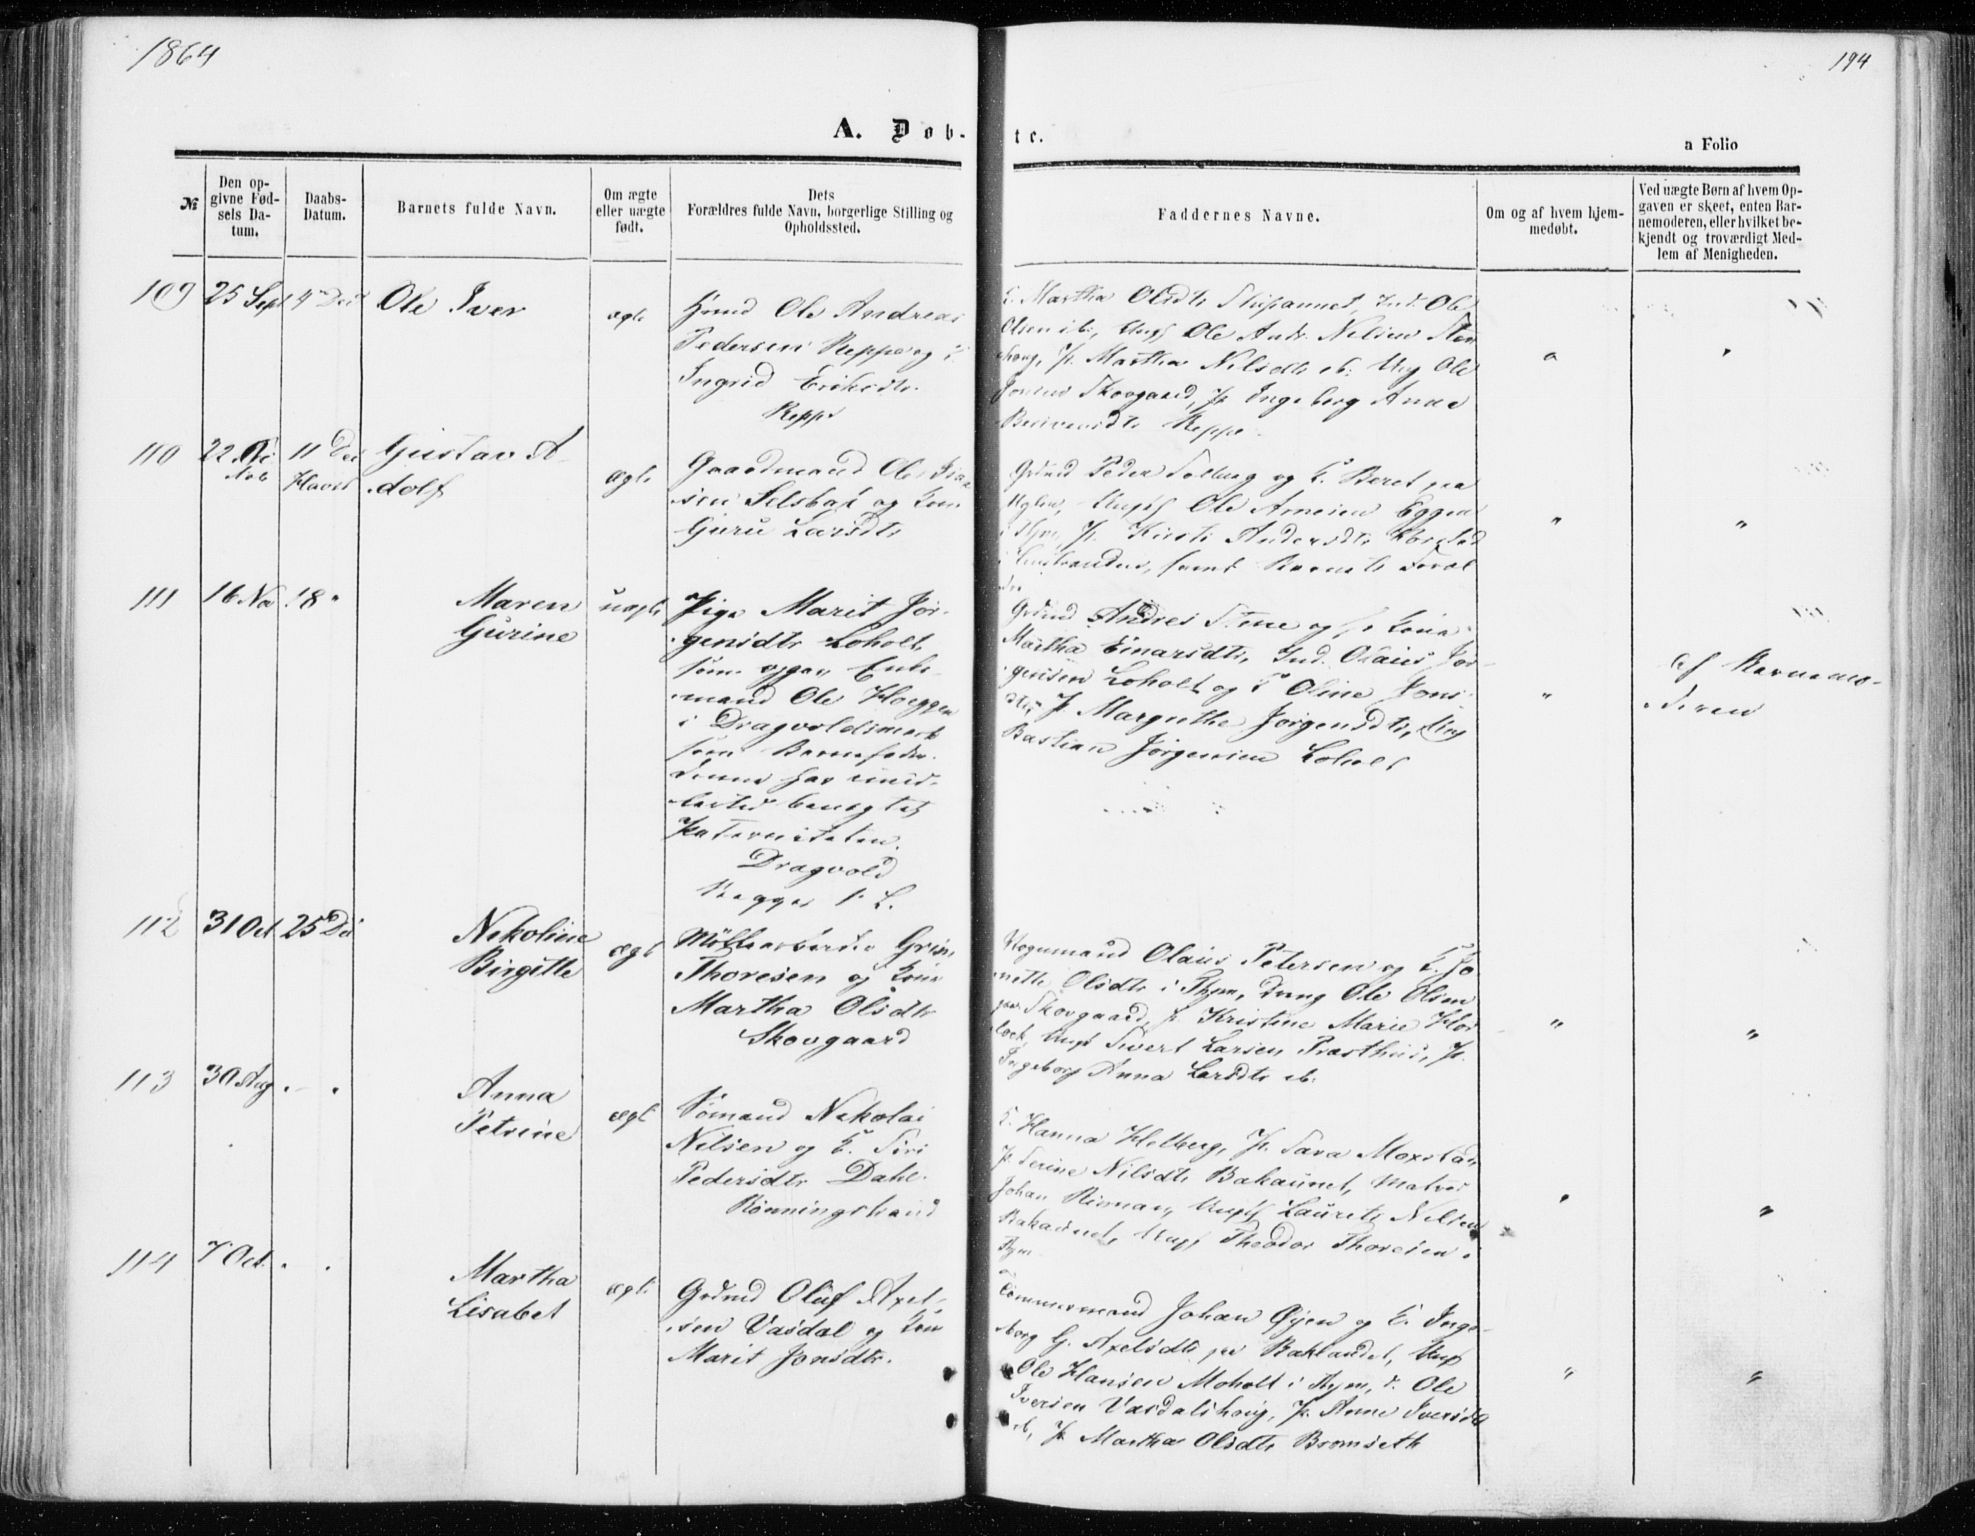 1864
194
A. Døb-
te.
a Folio
№
Den op-
givne Fød-
sels Da-
tum.
Daabs-
Datum.
Barnets fulde Navn.
Om ægte
eller uægte
født.
Dets
Forældres fulde Navn, borgerlige Stilling og
Opholdssted.
Faddernes Navne.
Om og af hvem hjem-
medøbt.
Ved uægte Børn af hvem Op-
gaven er skeet, enten Bar-
nemoderen, eller hvilket be-
kjendt og troværdigt Med-
lem af Menigheden.
109
25 Sept
4 Dec
Ole Iver
ægte
Ole Andreas
Pedersen Reppe og
Ingrid Eriksdtr
Reppe
E. Martha Olsdtr Ole
Olsen ib., Ungk Ole Andr. Nilsen
P. Martha Nilsdtr ib. Ung Ole
Skovgaard, P. Ingeborg Anna
Reppe
110
22
11 Dec
Gustav A
dolf
ægte
Gaardmand Ole
sen Selsbak og Kone
Guru Larsdtr
Peder Solberg og E. Beret paa
Ungk Ole Arnesen Eggen
P. Kirsti Andersdtr
Strinden, samt Barnets Foræl
dre
111
16 No
18 "
Maren
Gurine
uægte
Pige Marit Jør-
gensdtr Loholt
som opgav Enke-
mand Ole Hoeggen
i Dragvoldsmark
som Barnefader.
Denne har imid-
lertid benægtet
Paterniteten.
Dragvold
Begges 1. L.
Andres Stene og Kone
Martha Einarsdtr, Ind. Olaus Jør-
gensen Loholt og E Oline Jons-
dtr, P. Margrethe Jørgensdtr, Ung
Bastian Jørgensen Loholt
"
af Barnemo-
deren
112
31 Oct
25 De
Nekoline
Birgitte
ægte
Møllearbeider Grim
Thoresen og Kone
Martha Olsdtr
Skovgaard
Olaus Petersen og E. Jo
nette Olsdtr i Thjem, Dreng Ole Olsen
Skovgaard, P. Kristine Marie
Ungk Sivert Larsen Præsthus, P.
Ingeborg Anna Larsdtr ib.
"
"
113
30 Aug
Anna
Petrine
ægte
Sømand Nekolai
Nilsen og E. Siri
Pedersdtr Dahl.
Rønningstrand
E. Hanna Helberg, P. Sara
P. Serine Nilsdtr Bakaunet, Matros
Johan Ungk Laurits Nilsen
Bakaunet, Ungk Theodor Thoresen i
Thjem
"
"
114
7 Oct
Martha
Lisabet
ægte
Grdmd Oluf Axel-
sen Vasdal og Kone
Marit Jonsdtr.
Tømmermand Johan Øyen og E. Inge-
borg G. Axelsdtr paa Baklandet, Ungk
Ole Hansen Moholt i Thjem, Ole
Iversen Vasdalshaug, P. Anne Iversdtr
ib, P. Martha Olsdtr Bromseth
"
"